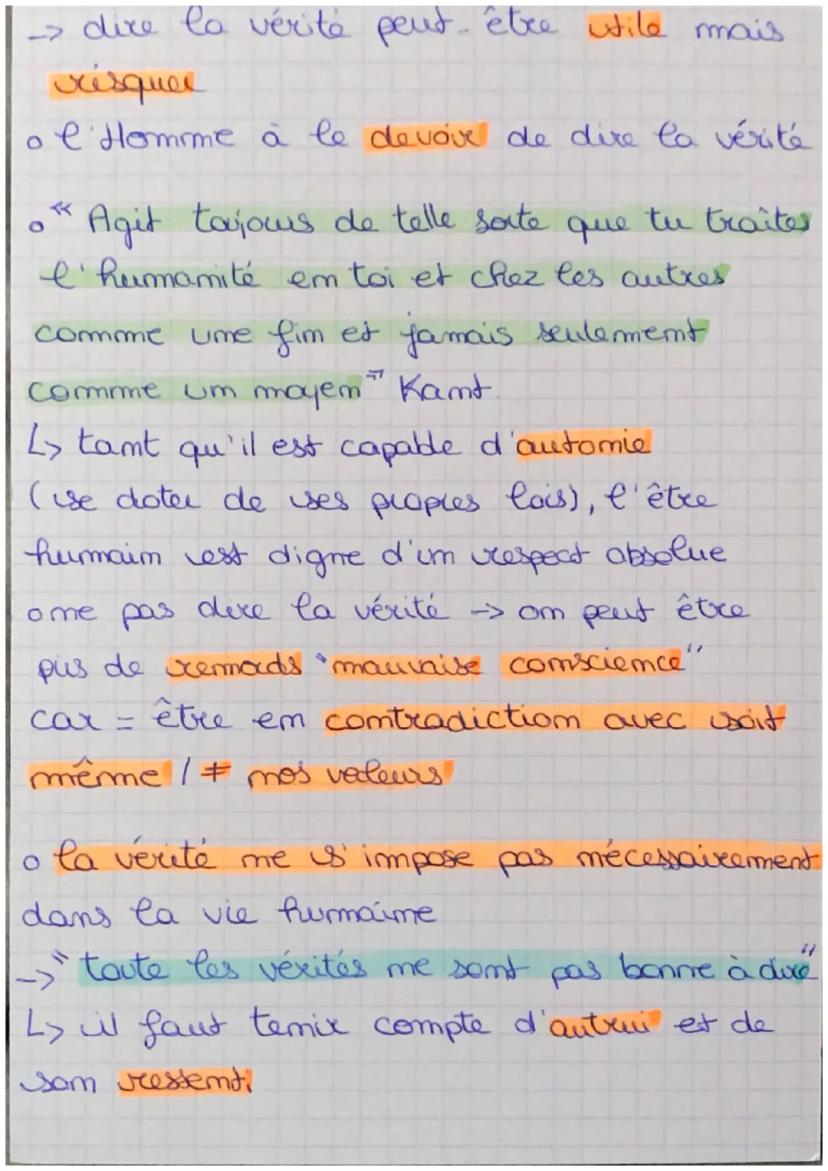 -> dire la vérité peut-être utile mais
risquer
o l'Homme à le devoir de dire la vérité
o "Agit toujours de telle sorte que tu traites
l'humanité en toi et chez les autres
comme une fin et jamais seulement
comme un moyen" Kant.
L> tant qu'il est capable d'automie
(se doter de ses propres lois), l'être
humain est digne d'un respect absolue
o ne pas dire la vérité -> on peut être
pris de remords "mauvaise conscience"
car = être en contradiction avec soit
même / ≠ nos valeurs
o la vérité ne s'impose pas nécessairement
dans la vie humaine
-> "toute les vérités ne sont pas bonne à dire"
L> il faut tenir compte d'autrui et de
son ressenti